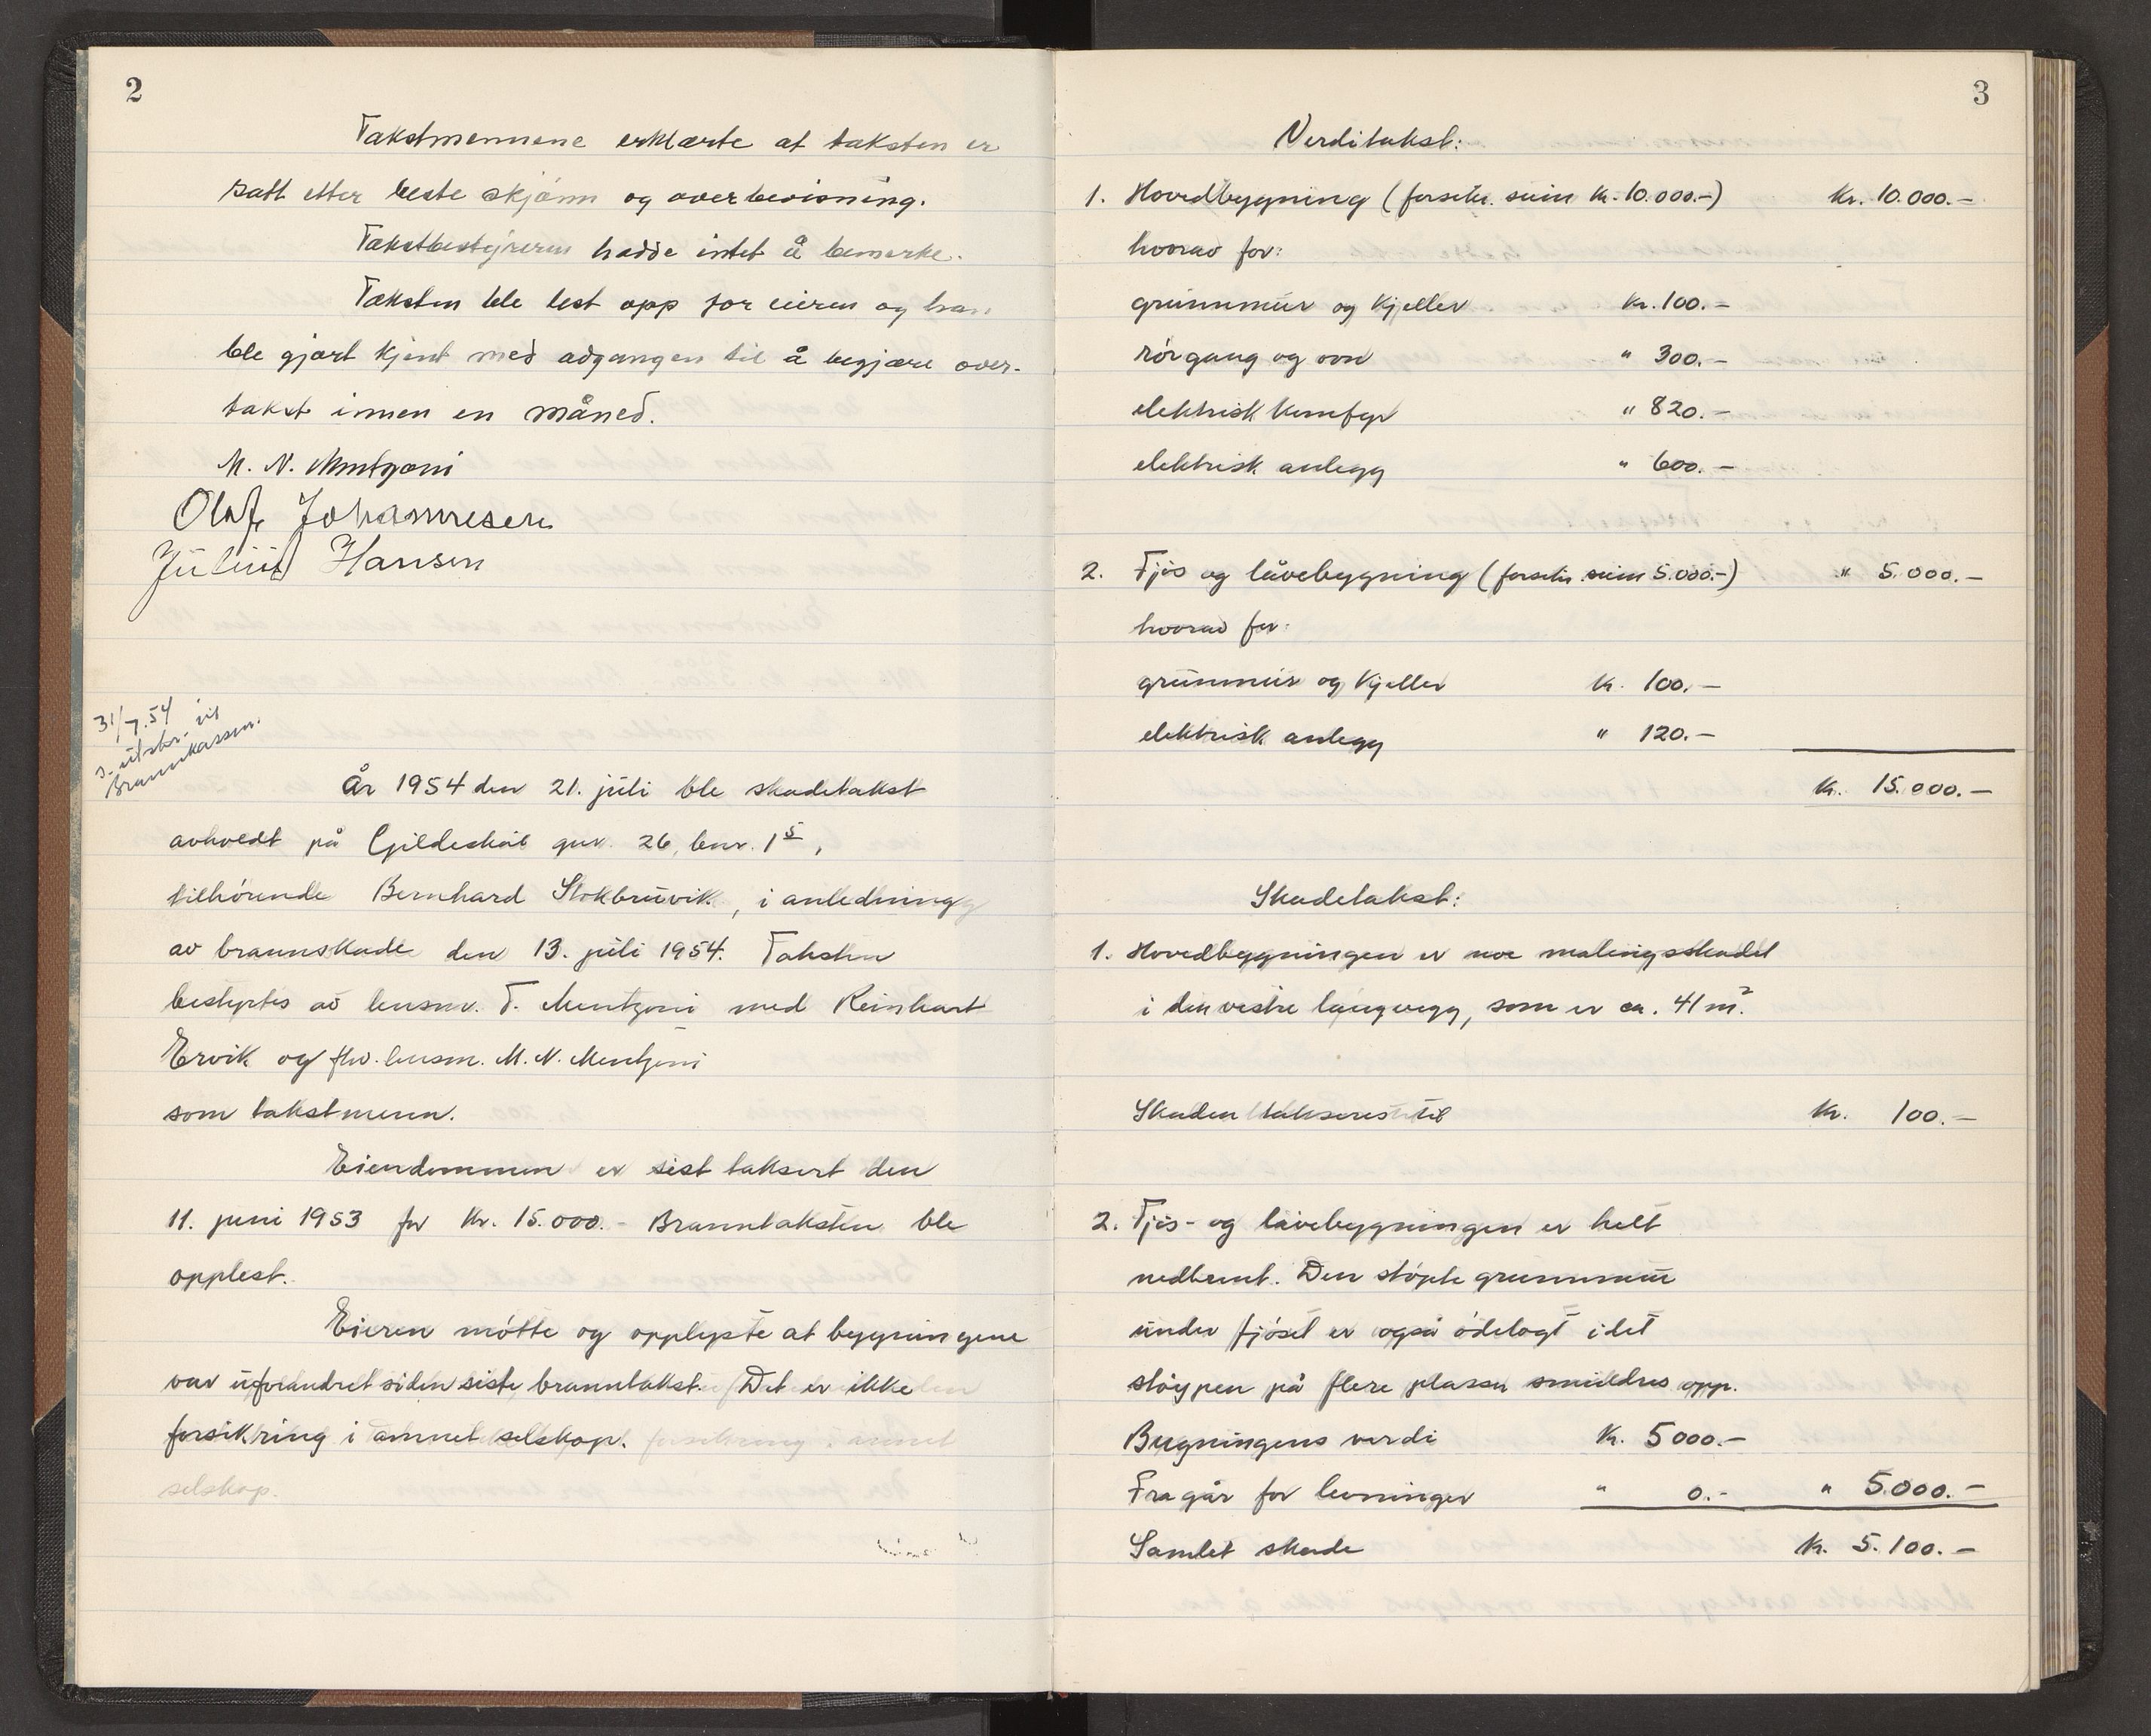 2
Takstmennene erklærte at taksten er
satt etter beste skjønn og overbevisning.
Takstbestyreren hadde intet å bemerke.
Taksten ble lest opp for eieren og han
ble gjort kjent med adgangen til å begjære over-
takst innen en måned.
M. N. Mentzoni
Olaf Johannesen
Julius Hansen
31/7.54
s. utskr. til
Brannkassen.
År 1954 den 21. juli ble skadetakst
avholdt på Gildeskål gnr. 26, bnr. 15,
tilhørende Bernhard Stokbruvik, i anledning
av brannskade den 13. juli 1954. Taksten
bestyrtes av lensm. T. Mentzoni med Reinhart
Ervik og fhv. lensm. M. N. Mentzoni
som takstmenn.
Eiendommen er sist taksert den
11. juni 1953 for Kr. 15.000.- Branntaksten ble
opplest.
Eieren møtte og opplyste at bygningene
var uforandret siden siste branntakst. Det er ikke
forsikring i annet selskap. forsikring i annet
selskap.
3
Verditakst:
1. Hovedbygning (forsikr. sum Kr. 10.000.-) Kr. 10.000.-
hvorav for:
grunnmur og kjeller Kr. 100.-
rørgang og ovn " 300.-
elektrisk komfyr " 820.-
elektrisk anlegg " 600.-
2. Fjøs og låvebygning (forsikr. sum 5.000.-) " 5.000.-
hvorav for:
grunnmur og kjeller Kr. 100.-
elektrisk anlegg " 120.-
Kr. 15.000.-
Skadetakst:
1. Hovedbygningen er noe malingsskadet
i den vestre langvegg, som er ca. 41 m².
Skaden takseres til Kr. 100.-
2. Fjøs- og låvebygningen er helt
nedbrent. Den støpte grunnmur
under fjøset er også ødelagt idet
støypen på flere plasser smuldres opp.
Bygningens verdi Kr. 5000.-
Fragår for levninger " 0.- " 5.000.-
Samlet skade Kr. 5.100.-